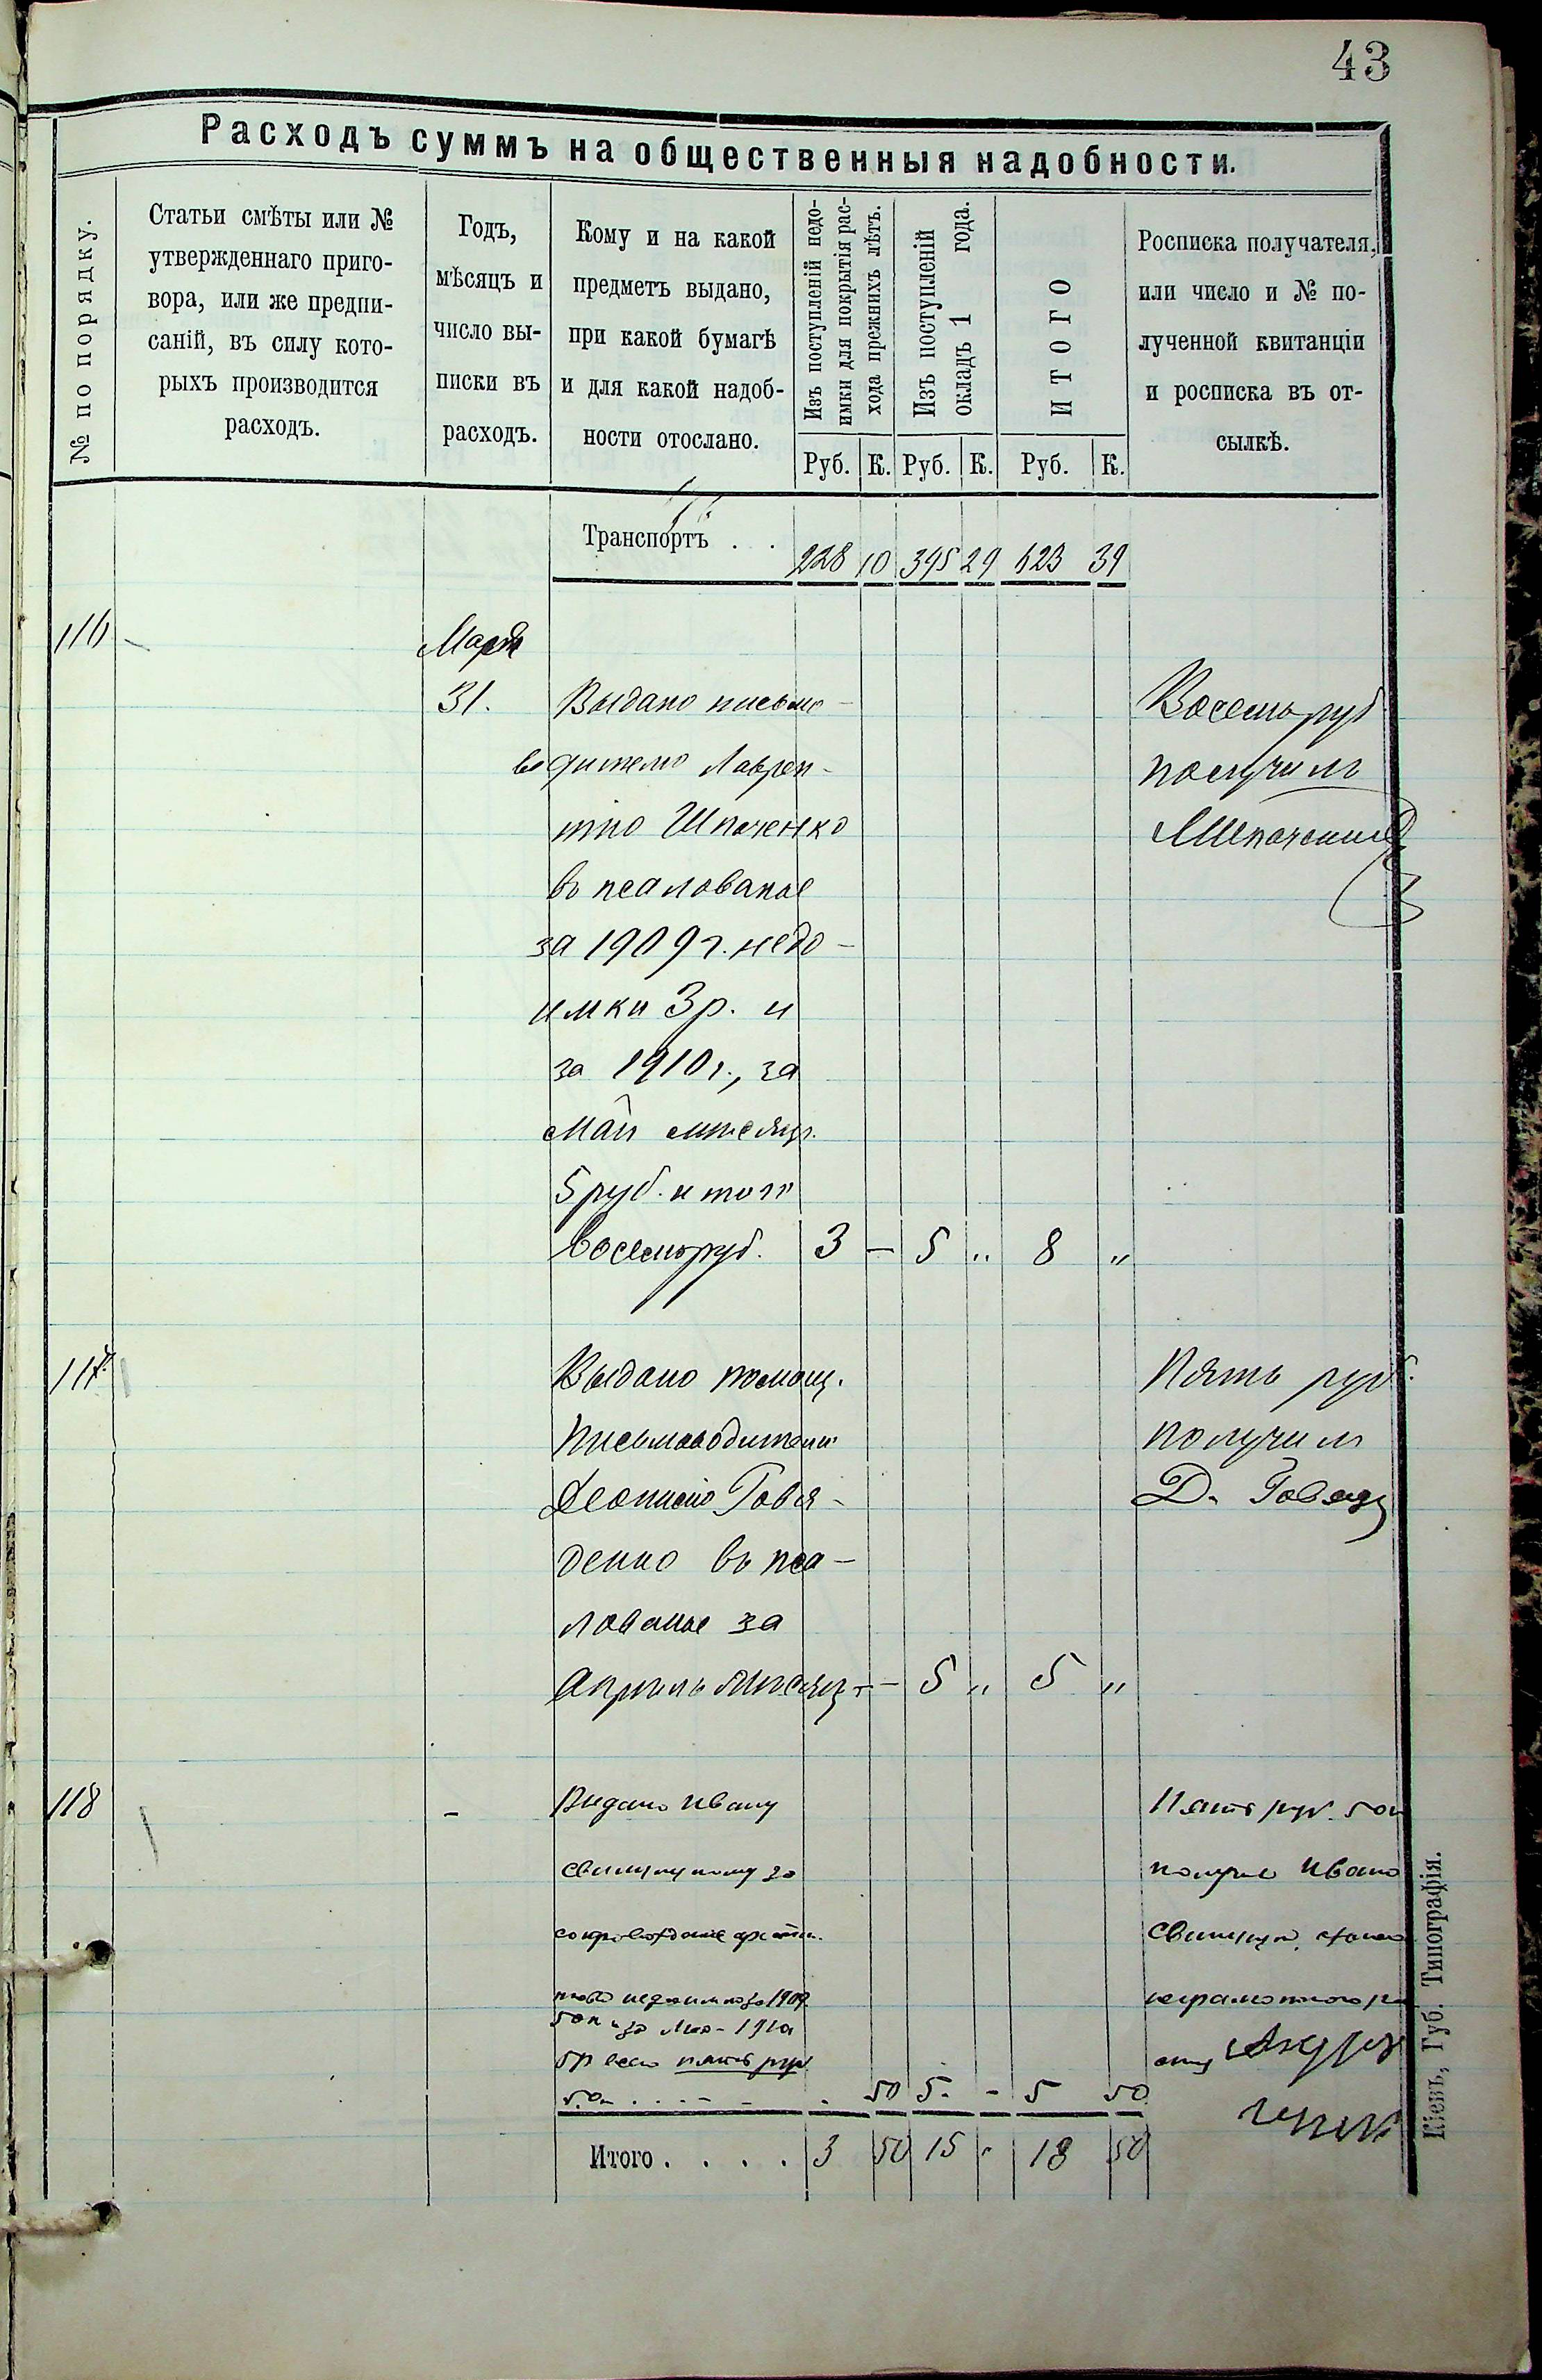 43
Расходъ суммъ на общественныя надобности.
№ по порядку.
Статьи смѣты или №
утвержденнаго приго-
вора, или же предпи-
саній, въ силу кото-
рыхъ производится
расходъ.
Годъ,
мѣсяцъ и
число вы-
писки въ
расходъ.
Кому и на какой
предметъ выдано,
при какой бумагѣ
и для какой надоб-
ности отослано.
Изъ поступленій недо-
имки для покрытія рас-
хода прежнихъ лѣтъ.
Изъ поступленій
окладъ 1 года.
ИТОГО
Росписка получателя,
или число и № по-
лученной квитанціи
и росписка въ от-
сылкѣ.
Руб. К. Руб. К. Руб. К.
Транспортъ . . 228 10 395 29 623 39
116 Марта
31. Выдано письмо-
водителю Лаврен-
тію Шпаченко
въ жалованье
за 1909 г. недо-
имки 3 р. и
за 1910 г., за
Май мѣсяцъ
5 руб. итого
восемь руб. 3 — 5 „ 8 „
Восемь руб
получилъ
ЛШпаченко
117. Выдано помощ.
письмоводителя
Говя-
денко въ жа-
лованье за
Апрѣль мѣсяцъ - - 5 „ 5 „
Пять руб.
получилъ
Д. Говяд
118 - Видано Ивану
за
сопровождение
недоимка за 1909
50 к и за 1910
5 р всего пять руб
50 к . . . - - . 50 5. - 5 50
Пять руб. 50 к
получ Иванъ
неграмотного
Андрей
Итого . . . . 3 50 15 „ 18 50
Кіевъ, Губ. Типографія.